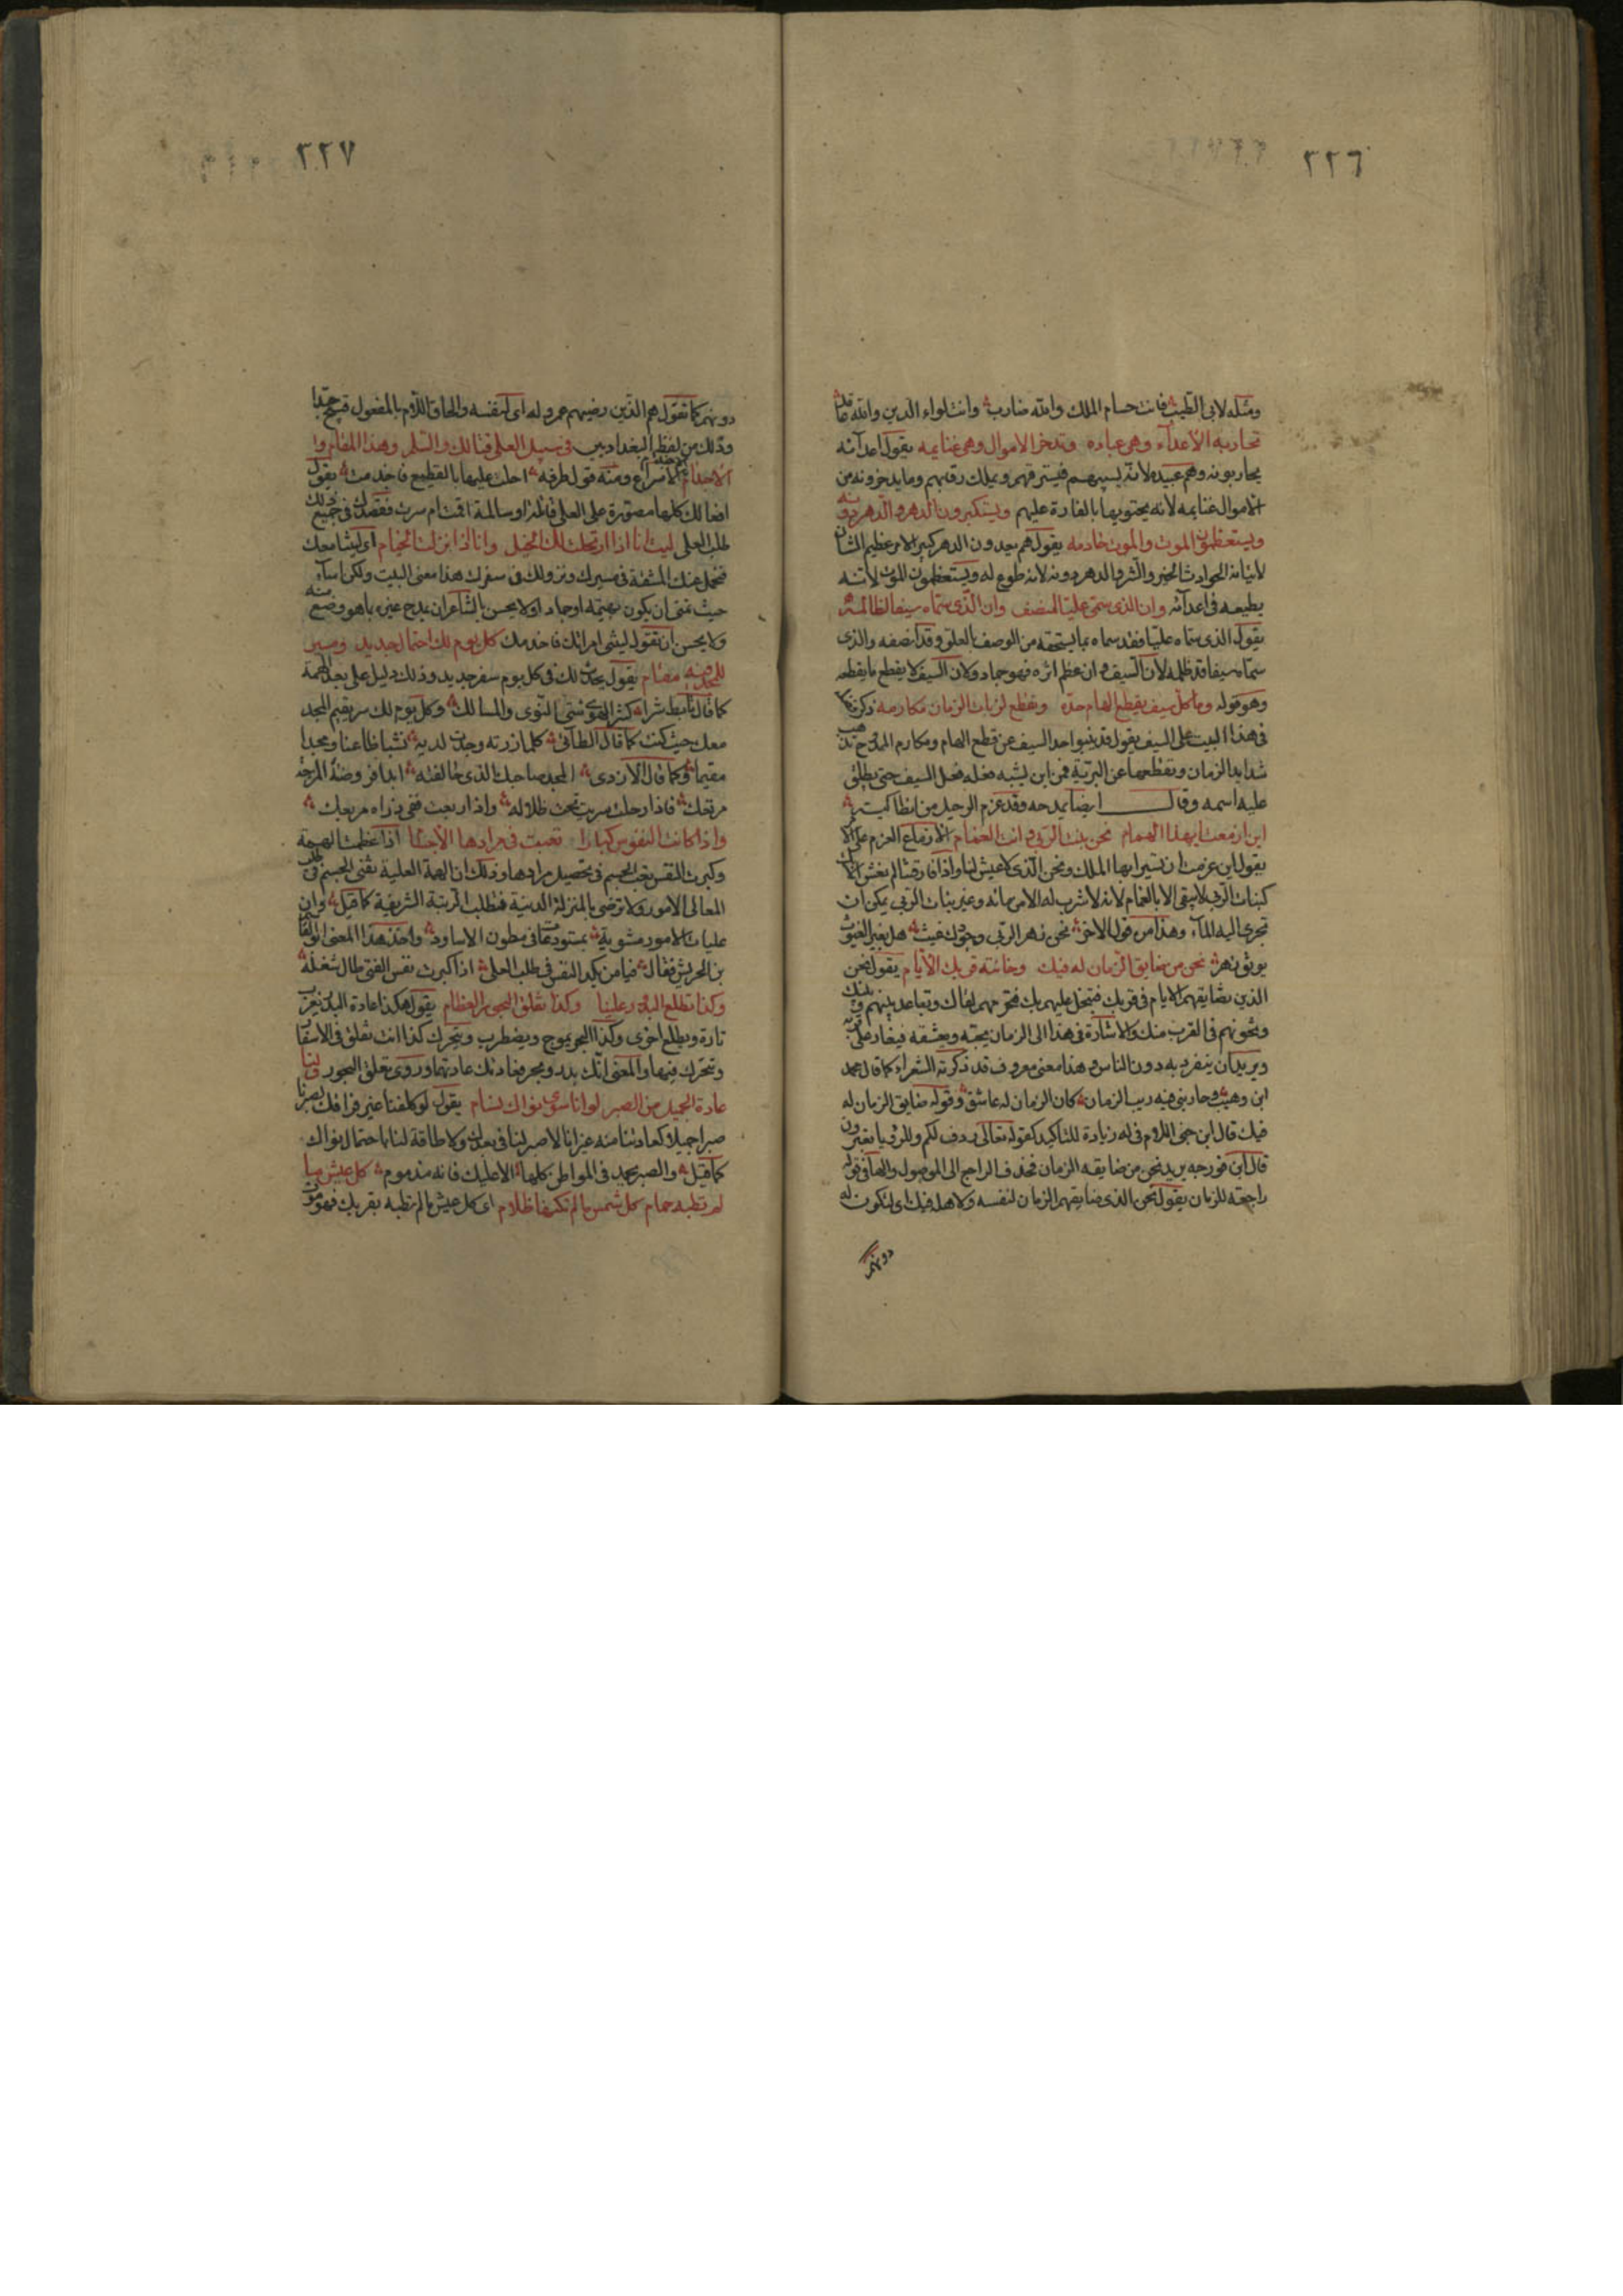 ٢٢٦
ومثله لابى الطيب فانت حسام الملك والله ضارب وانت لواء الدين والله عاقد
تحاربه الأعداء وهى عباده وتدخر الاموال وهى غنايمه يقول اعدائه
يحاربونه وهم عبيده لانه يسبيهم فيسترقهم ويملك رقابهم وما يدخرونه من
الاموال غنايمه لانه يحتويها بالغارة عليهم ويستكبرون الدهر والدهر دونه
ويستعظمون الموت والموت خادمه يقول هم يعدون الدهر كبير الامر عظيم الشان
لاتيانه الحوادث الخير والشر والدهر دونه لانه طوع له ويستعظمون الموت لانه
يطيعه فى اعدائه وان الذى سمى عليا لمنصف وان الذى سماه سيفا لظالمه
يقول الذى سماه عليا فقد سماه بما يستحقه من الوصف بالعلو وقد انصفه والذى
سماه سيفا قد ظلمه لأن السيف وان عظم اثره فهو جماد ولان السيف لا يقطع ما يقطعه
وهو قوله وما كل سيف يقطع الهام حده وتقطع لزبات الزمان مكارمه
فى هذا البيت على السيف يقول قد ينبو احد السيف عن قطع الهام ومكارم الممدوح تذهب
شدايد الزمان وتقطعها عن البرية فمن اين يشبه فعله فعل السيف حتى يطلق
عليه اسمه وقال ايضا يمدحه وقد عزم الرحيل من انطاكية
اين ازمعت ايهذا الهمام نحن نبت الربى وانت الغمام الازماع العزم على
يقول اين عزمت ان تسير ايها الملك ونحن الذى لا عيش لنا واذا فارقتنا لم نعش
كنبات الربى لا يبقى الا بالغمام لانه لا شرب له الا من مائه وغير نبات الربى يمكن ان
تجرى اليه الماء وهذا من قول الاخر نحن زهر الربى وجودك غيث هل بغير الغيوث
يونق زهر نحن من ضايق الزمان له فيك وخانته قربك الأيام يقول نحن
الذين تضايقهم الايام فى قربك فتبخل عليهم بك فتحرمهم لقاك وتباعد بينهم وبينك
وتخونهم فى القرب منك والاشارة فى هذا الى الزمان يحبه ويعشقه فيغار على
ويريد ان ينفرد به دون الناس وهذا معنى معروف قد ذكرته الشعراء كما قال محمد
ابن وهيب وحاربنى فيه ريب الزمان كان الزمان له عاشق وقوله ضايق الزمان له
فيك قال ابن جنى اللام فى له زيادة للتاكيد كقوله تعالى ردف لكم وللرؤيا تعبرون
قال ابن فورجه يريد نحن من ضايقه الزمان فحذف الراجع الى الموصول والهاء فى قوله
راجعة للزمان يقول نحن الذى ضايقهم الزمان لنفسه ولاهله فيك اى لتكون له
دونهم
٢٢٧
دونهم كما تقول هم الذين رضيهم عمرو له اى لنفسه والحاق اللام بالمفعول قبيح جدا
وذلك من لفظ البغداديين فى سبيل العلى قتالك والسلم وهذا المقام وا
لاجذام الاسراع ومنه قول طرفه احلت عليها بالقطيع فاجذمت يقول
افعالك كلها مقصورة على العلى قتالا او سالمة اقمت ام سرت فقصدك فى جميع ذلك
طلب العلى ليت انا اذا ارتحلت لك الخيل وانا اذا نزلت الخيام اى ليتنا معك
فنحمل عنك المشقة فى مسيرك ونزولك فى سفرك هذا معنى البيت ولكن اساء
حيث تمنى ان يكون بهيمة او جمادا ولا يحسن بالشاعر ان يمدح غيره بما هو وضع منه
ولا يحسن ان تقول ليتنى امراتك فاخدمك كل يوم لك احتمال جديد ومسير
للمجد فيه مقام يقول يحدث لك فى كل يوم سفر جديد وذلك دليل على بعد الهمة
كما قال تأبط شرا كثير الهوى شتى النوى والمسالك وكل يوم لك سر يقيم المجد
معك حيث كنت كما قال الطائى كلما زرته وجدت لديه نشبا ظاعنا ومجدا
مقيما وكما قال الأزدى المجد صاحبك الذى حالفته ابدا فروضته المرجة
مرتعك فاذا رحلت سريت تحت ظلاله واذا ربعت ففى ذراه مربعك
واذا كانت النفوس كبارا تعبت فى مرادها الأجسام اذا عظمت الهمة
وكبرت النفس تعب الجسم فى تحصيل مرادها وذلك ان الهمة العلية تعنى الجسم فى طلب
المعالى الامور ولا ترضى بالمنزلة الدنية فتطلب الرتبة الشريفة كما قيل وان
عليات الامور مشوبة بمستودعات فى بطون الاساود واخذ هذا المعنى ابو القاسم
بن الحريش فقال فيا من يكد النفس فى طلب العلى اذا كبرت نفس الفتى طال شغله
وكذا تطلع البدور علينا وكذا تقلق البحور العظام يقول هكذا عادة البدر يغرب
تارة ويطلع اخرى وكذا البحر يموج ويضطرب ويتحرك كذا انت تقلق فى الاسفار
وتتحرك فيها والمعنى انك بدر وبحر فعادتك عادتهما وروى تعلق البحور ولنا
عادة الجميل من الصبر لو انا سوى نواك نسام يقول لو كلفنا غير فراقك لصبرنا
صبرا جميلا كعادتنا منه غير انا لا صبر لنا فى بعدك ولا طاقة لنا باحتمال نواك
كما قيل والصبر يحمد فى المواطن كلها الا عليك فانه مذموم كل عيش ما
لم تطبه حمام كل شمس ما لم تكنها ظلام اى كل عيش ما لم تطبه بقربك فهو موت